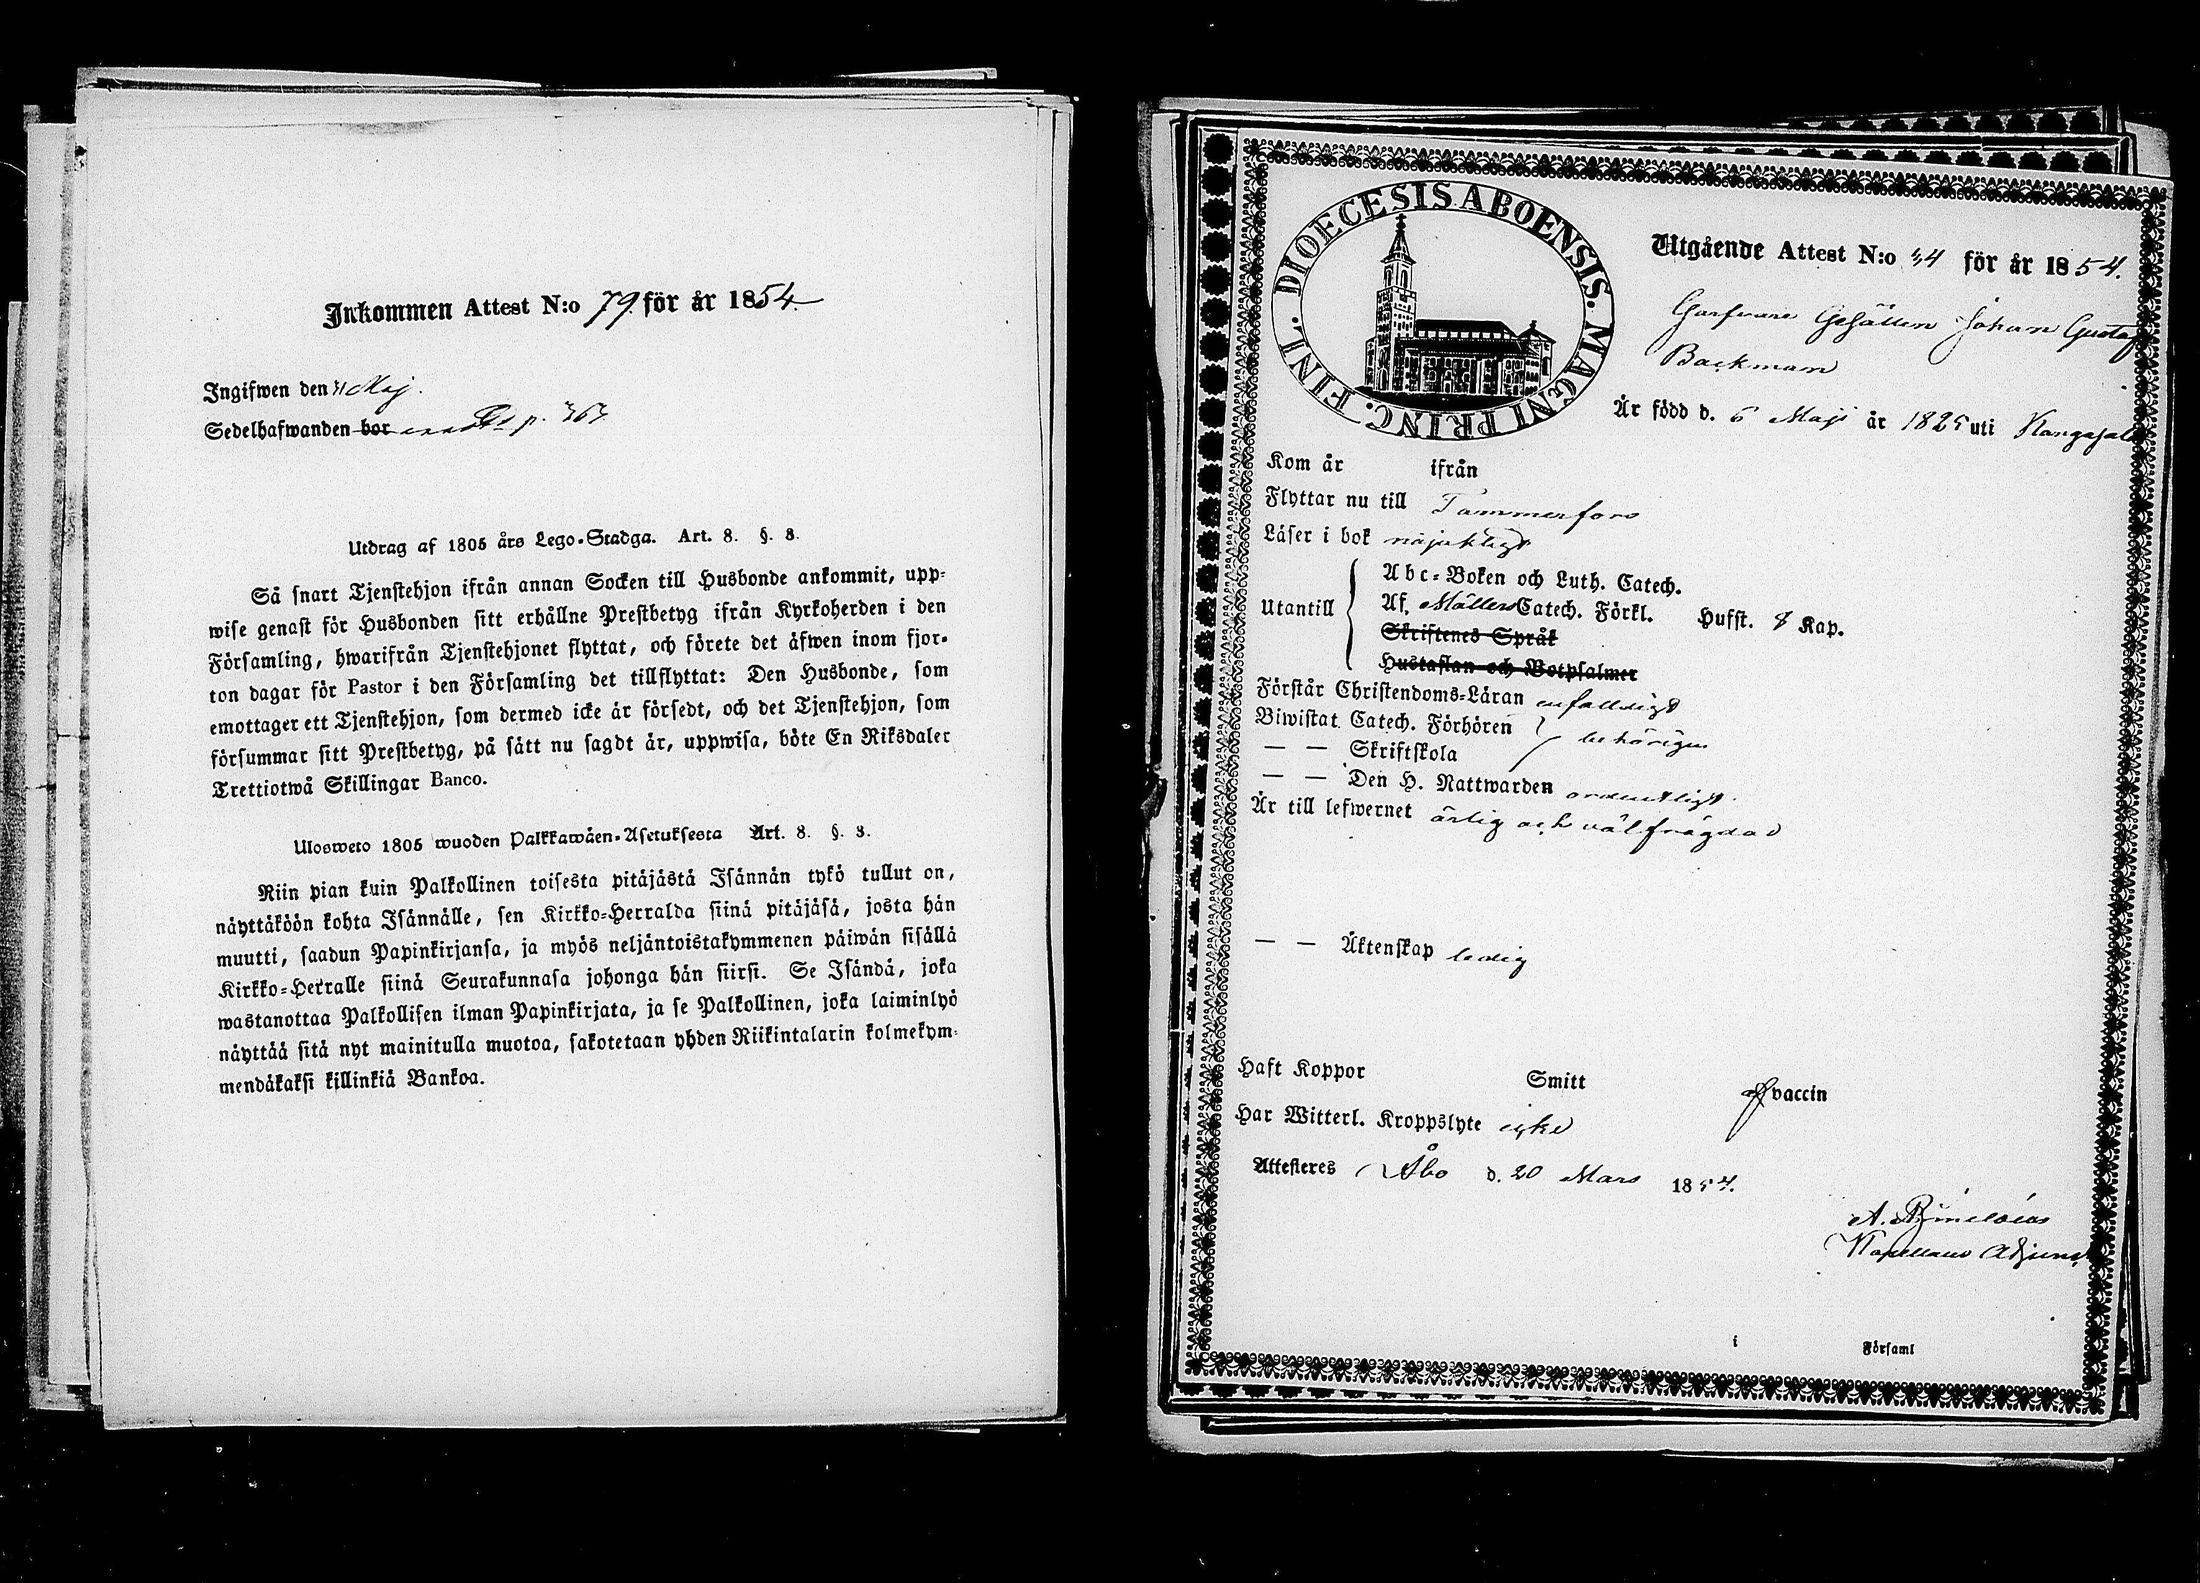 Inkommen Attest N:o 79. för år 1854.
Ingifwen den Maj.
Sedelhafwanden bor p. 363
Utdrag af 1805 års Lego-Stadga. Art. 8. §. 3.
Så snart Tjenstehjon ifrån annan Socken till Husbonde ankommit, upp-
wise genast för Husbonden sitt erhållne Prestbetyg ifrån Kyrkoherden i den
Församling, hwarifrån Tjenstehjonet flyttat, och förete det äfwen inom fjor-
ton dagar för Pastor i den Församling det tillflyttat: Den Husbonde, som
emottager ett Tjenstehjon, som dermed icke är försedt, och det Tjenstehjon, som
försummar sitt Prestbetyg, på sätt nu sagdt är, uppwisa, böte En Riksdaler
Trettiotwå Skillingar Banco.
Ulosweto 1805 wuoden Palkkawäen-Asetuksesta Art. 8. §. 3.
Niin pian kuin Palkollinen toisesta pitäjästä Isännän tykö tullut on,
näyttäköön kohta Isännälle, sen Kirkko-Herralda siinä pitäjäsä, josta hän
muutti, saadun Papinkirjansa, ja myös neljäntoistakymmenen päiwän sisällä
Kirkko-Herralle siinä Seurakunnasa johonga hän siirsi. Se Isändä, joka
wastanottaa Palkollisen ilman Papinkirjata, ja se Palkollinen, joka laiminlyö
näyttää sitä nyt mainitulla muotoa, sakotetaan yhden Riikintalarin kolmekym-
mendäkaksi killinkiä Bankoa.
DIOECESIS ABOENSIS. MAGNI PRINC. FINL.
Utgående Attest N:o 34 för år 1854.
Garfvare Gesällen Johan Gustaf
Backman
Är född d. 6 Maji år 1825 uti Kangasala
Kom år ifrån
Flyttar nu till Tammerfors
Läser i bok nöjaktigt
Utantill
Abc-Boken och Luth. Catech.
Af. Möllers Catech. Förkl. Hufst. 8 Kap.
Skriftenes Språk
Hustaflan och Botpsalmer
Förstår Christendoms-Läran enfaldigt
Biwistat Catech. Förhören
— — Skriftskola behörigen
— — Den H. Nattwarden ordentligt.
Är till lefwernet ärlig och välfrägdad
— — Äktenskap ledig
Haft Koppor Smitt af vaccin
Har Witterl. Kroppslyte icke
Attesteres Åbo d. 20 Mars 1854.
A.
Kapellans Adjunct.
i Församl